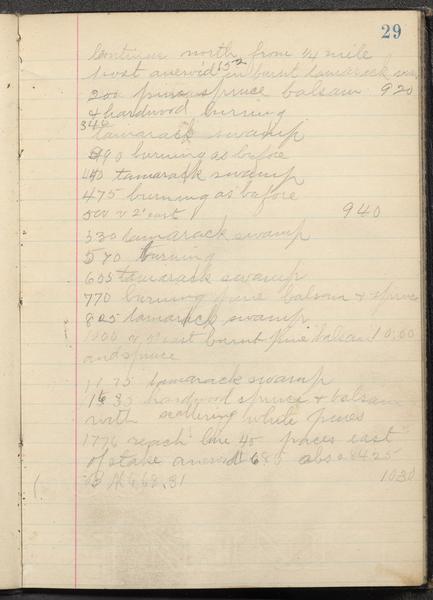 29
Continue north from 1/4 mile
post aneroid 652 in burnt tamarack
200 pine spruce balsam 920
& hardwood burning
346
tamarack swamp
390 burning as before
440 tamarack swamp
475 burning as before
500 v 2° east 940
530 tamarack swamp
570 burning
655 tamarack swamp
770 burning pine balsam & spruce
805 tamarack swamp
1000 v. east burnt pine balsam 10:00
and spruce
1175 tamarack swamp
1635 hardwood spruce & balsam
with scattering white pines
1776 reach line 45 paces east
of stake aneroid 685 abs 28425
1030